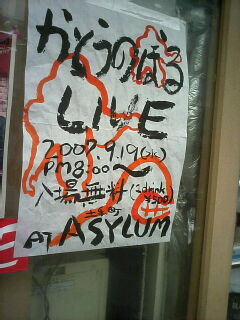 かとうのぼる
LIVE
2007.9.19(水)
PM8:00〜
入場無料(2drink
¥500)
AT ASYLUM